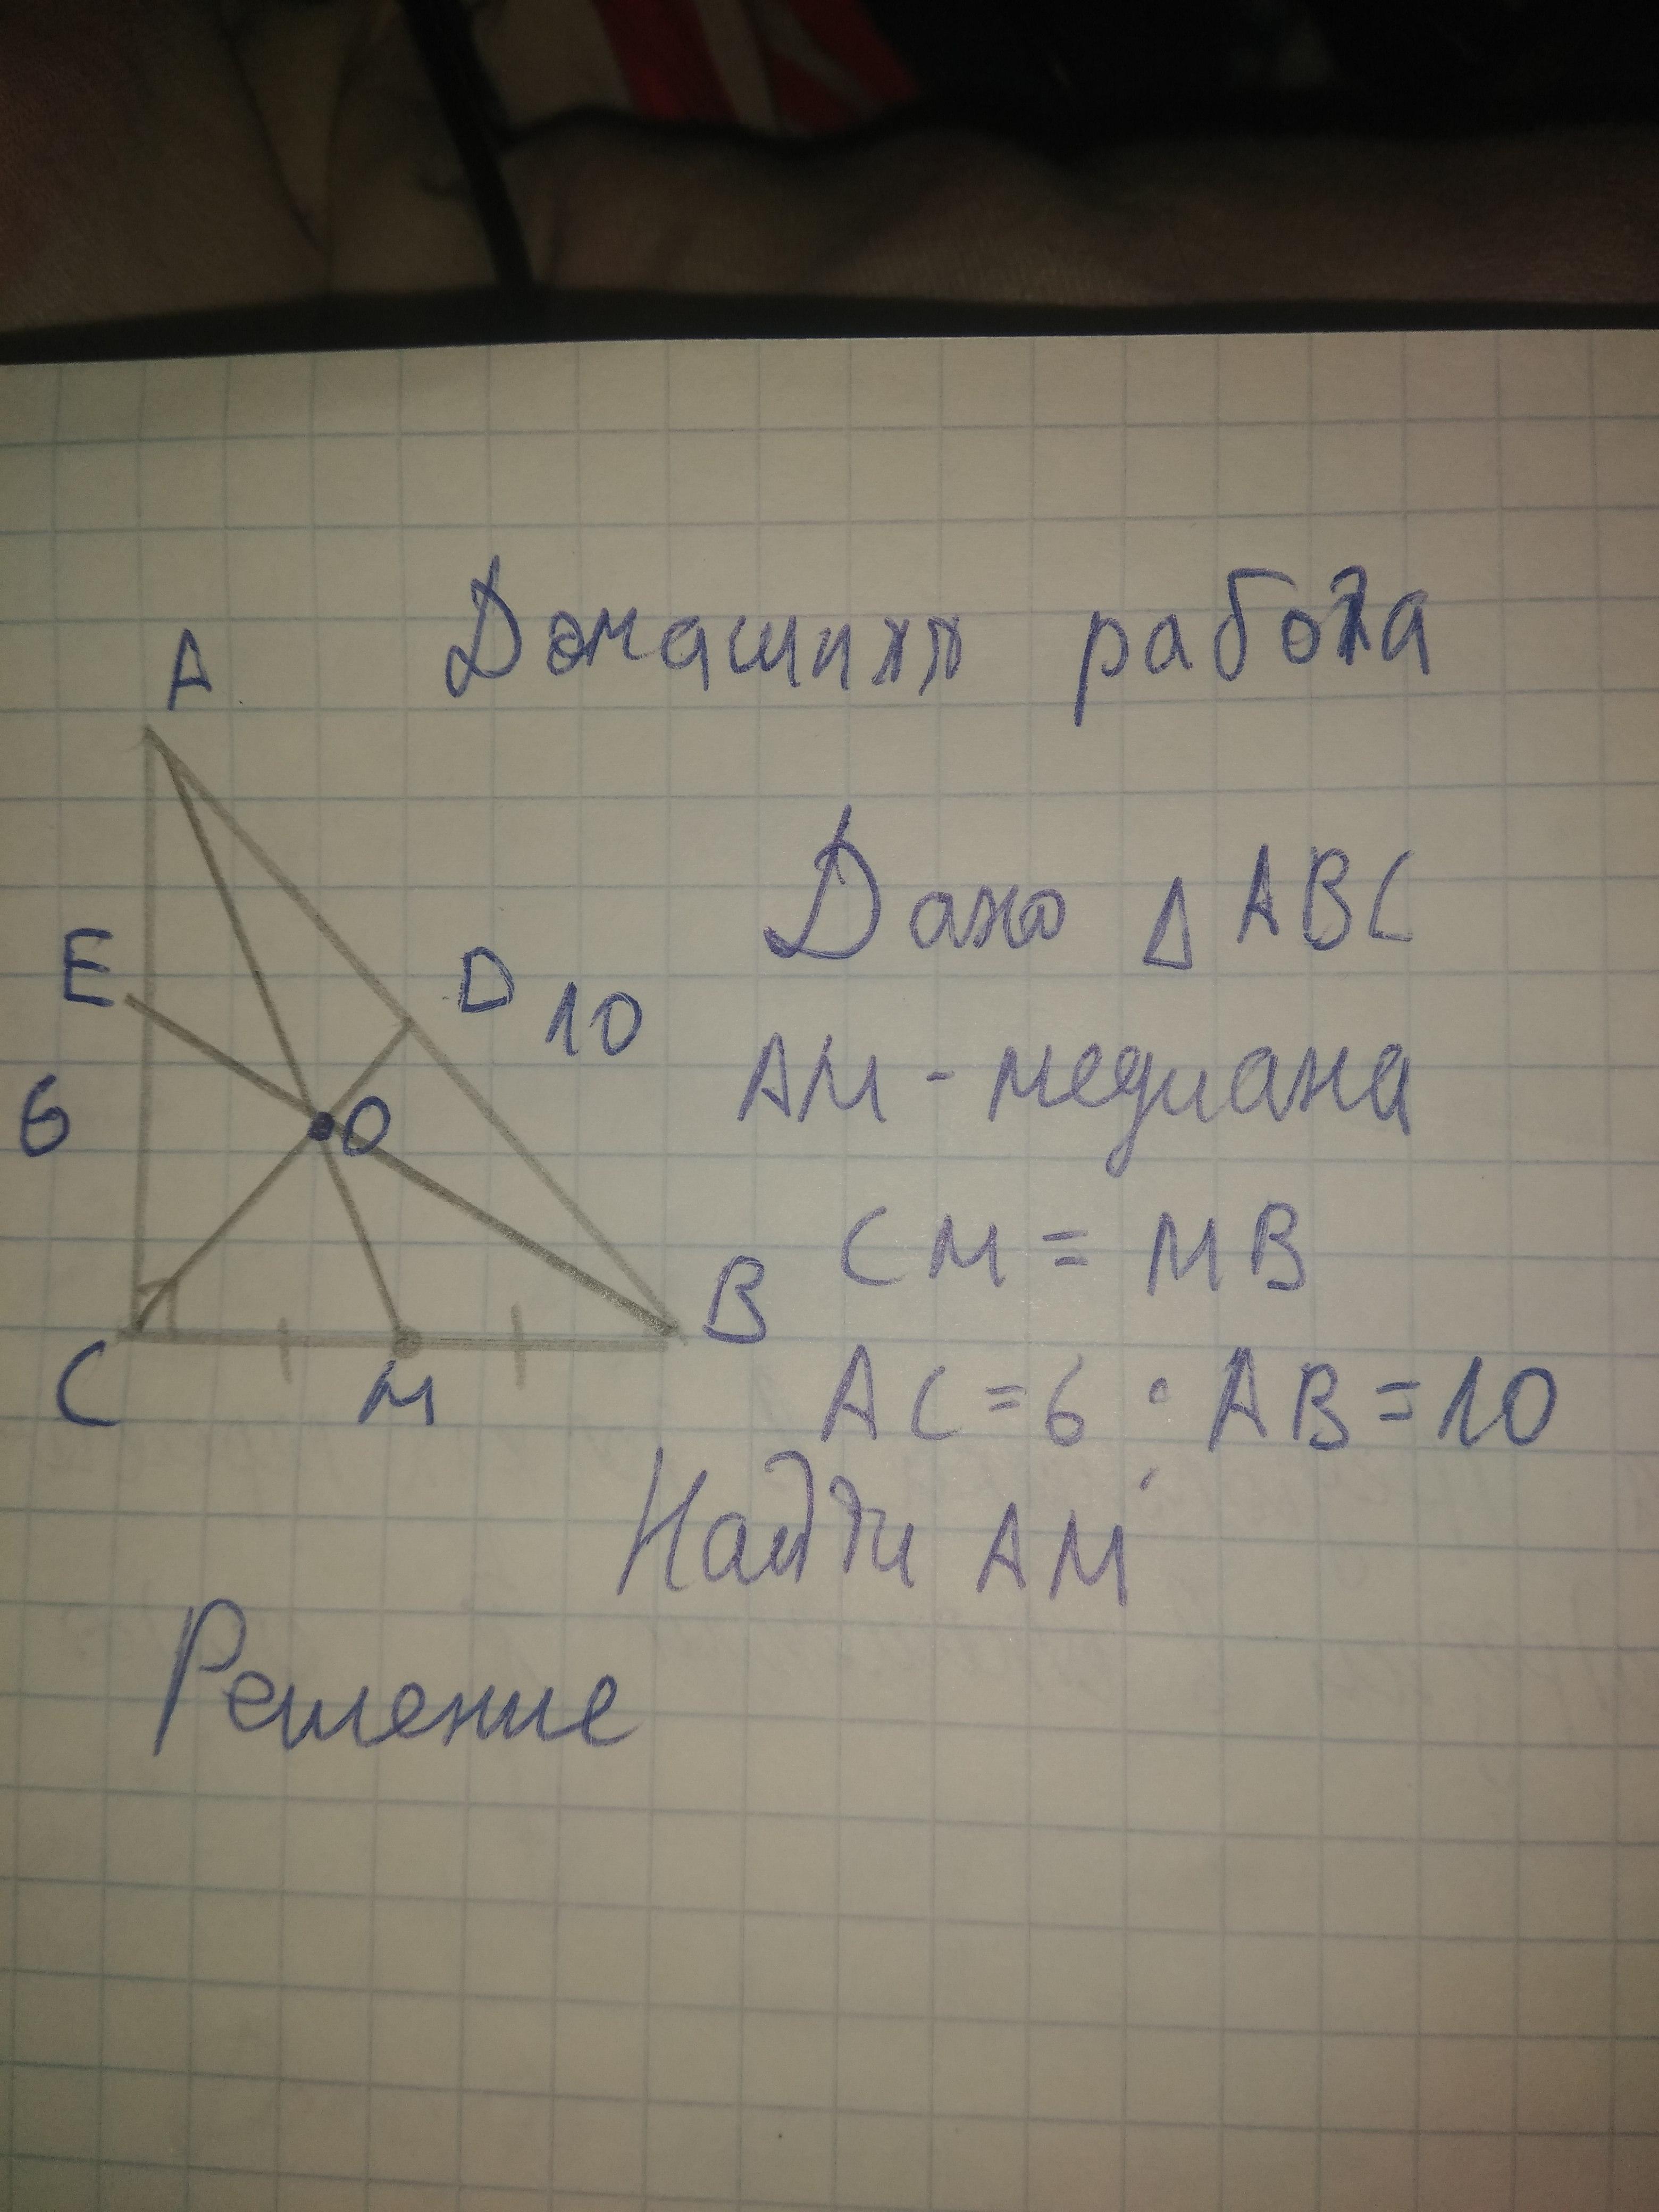 Домашняя работа
A
E
D
10
6
O
B
C
M
Дано △ABC
AM - медиана
CM = MB
AC = 6 ; AB = 10
Найти AM
Решение